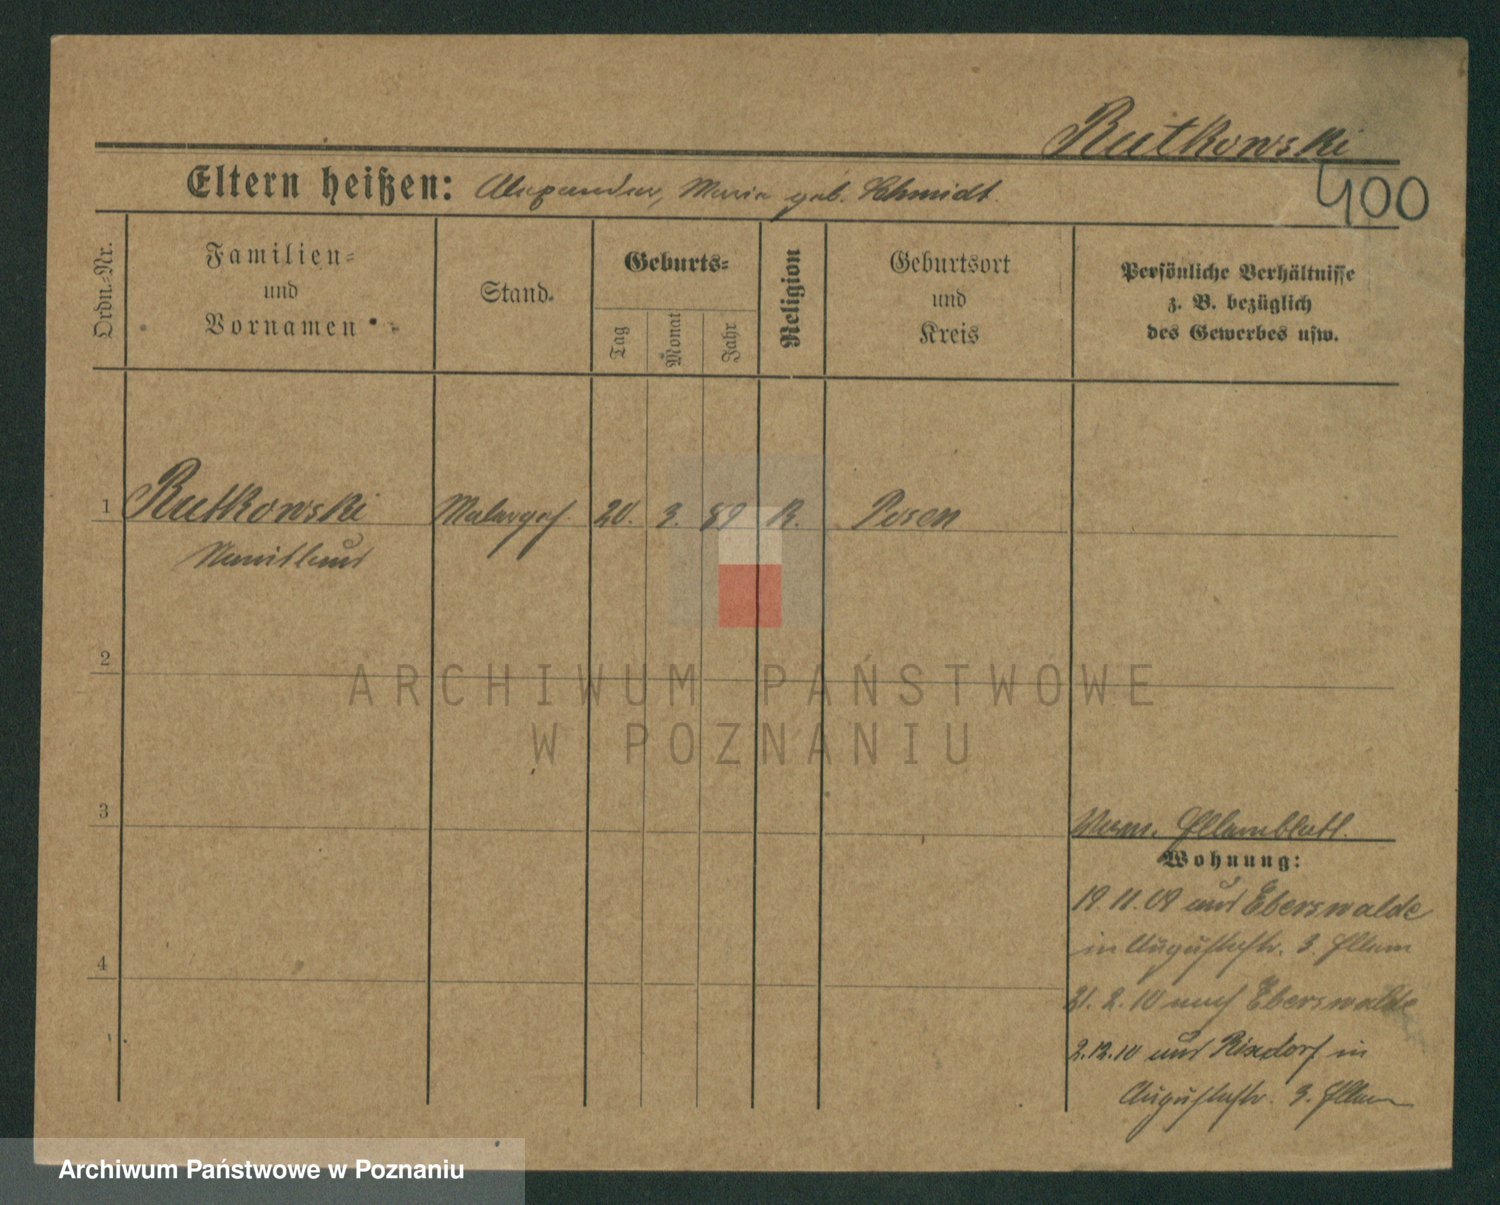 Rutkowski
400
Eltern heißen: Alexander, Maria geb. Schmidt.
Ordn.-Nr.
Familien-
und
Vornamen
Stand.
Geburts-
Tag
Monat
Jahr
Religion
Geburtsort
und
Kreis
Persönliche Verhältnisse
z. B. bezüglich
des Gewerbes usw.
1 Rutkowski Malergeh. 20. 3. 89 R. Posen
2
ARCHIWUM PAŃSTWOWE
W POZNANIU
3
Elternblatt.
Wohnung:
19. 11. 09 aus Eberswalde
in Augustastr. 3. Eltern
4
21. 2. 10 nach Eberswalde
2.12.10 aus Rixdorf in
Augustastr. 3. Eltern
Archiwum Państwowe w Poznaniu